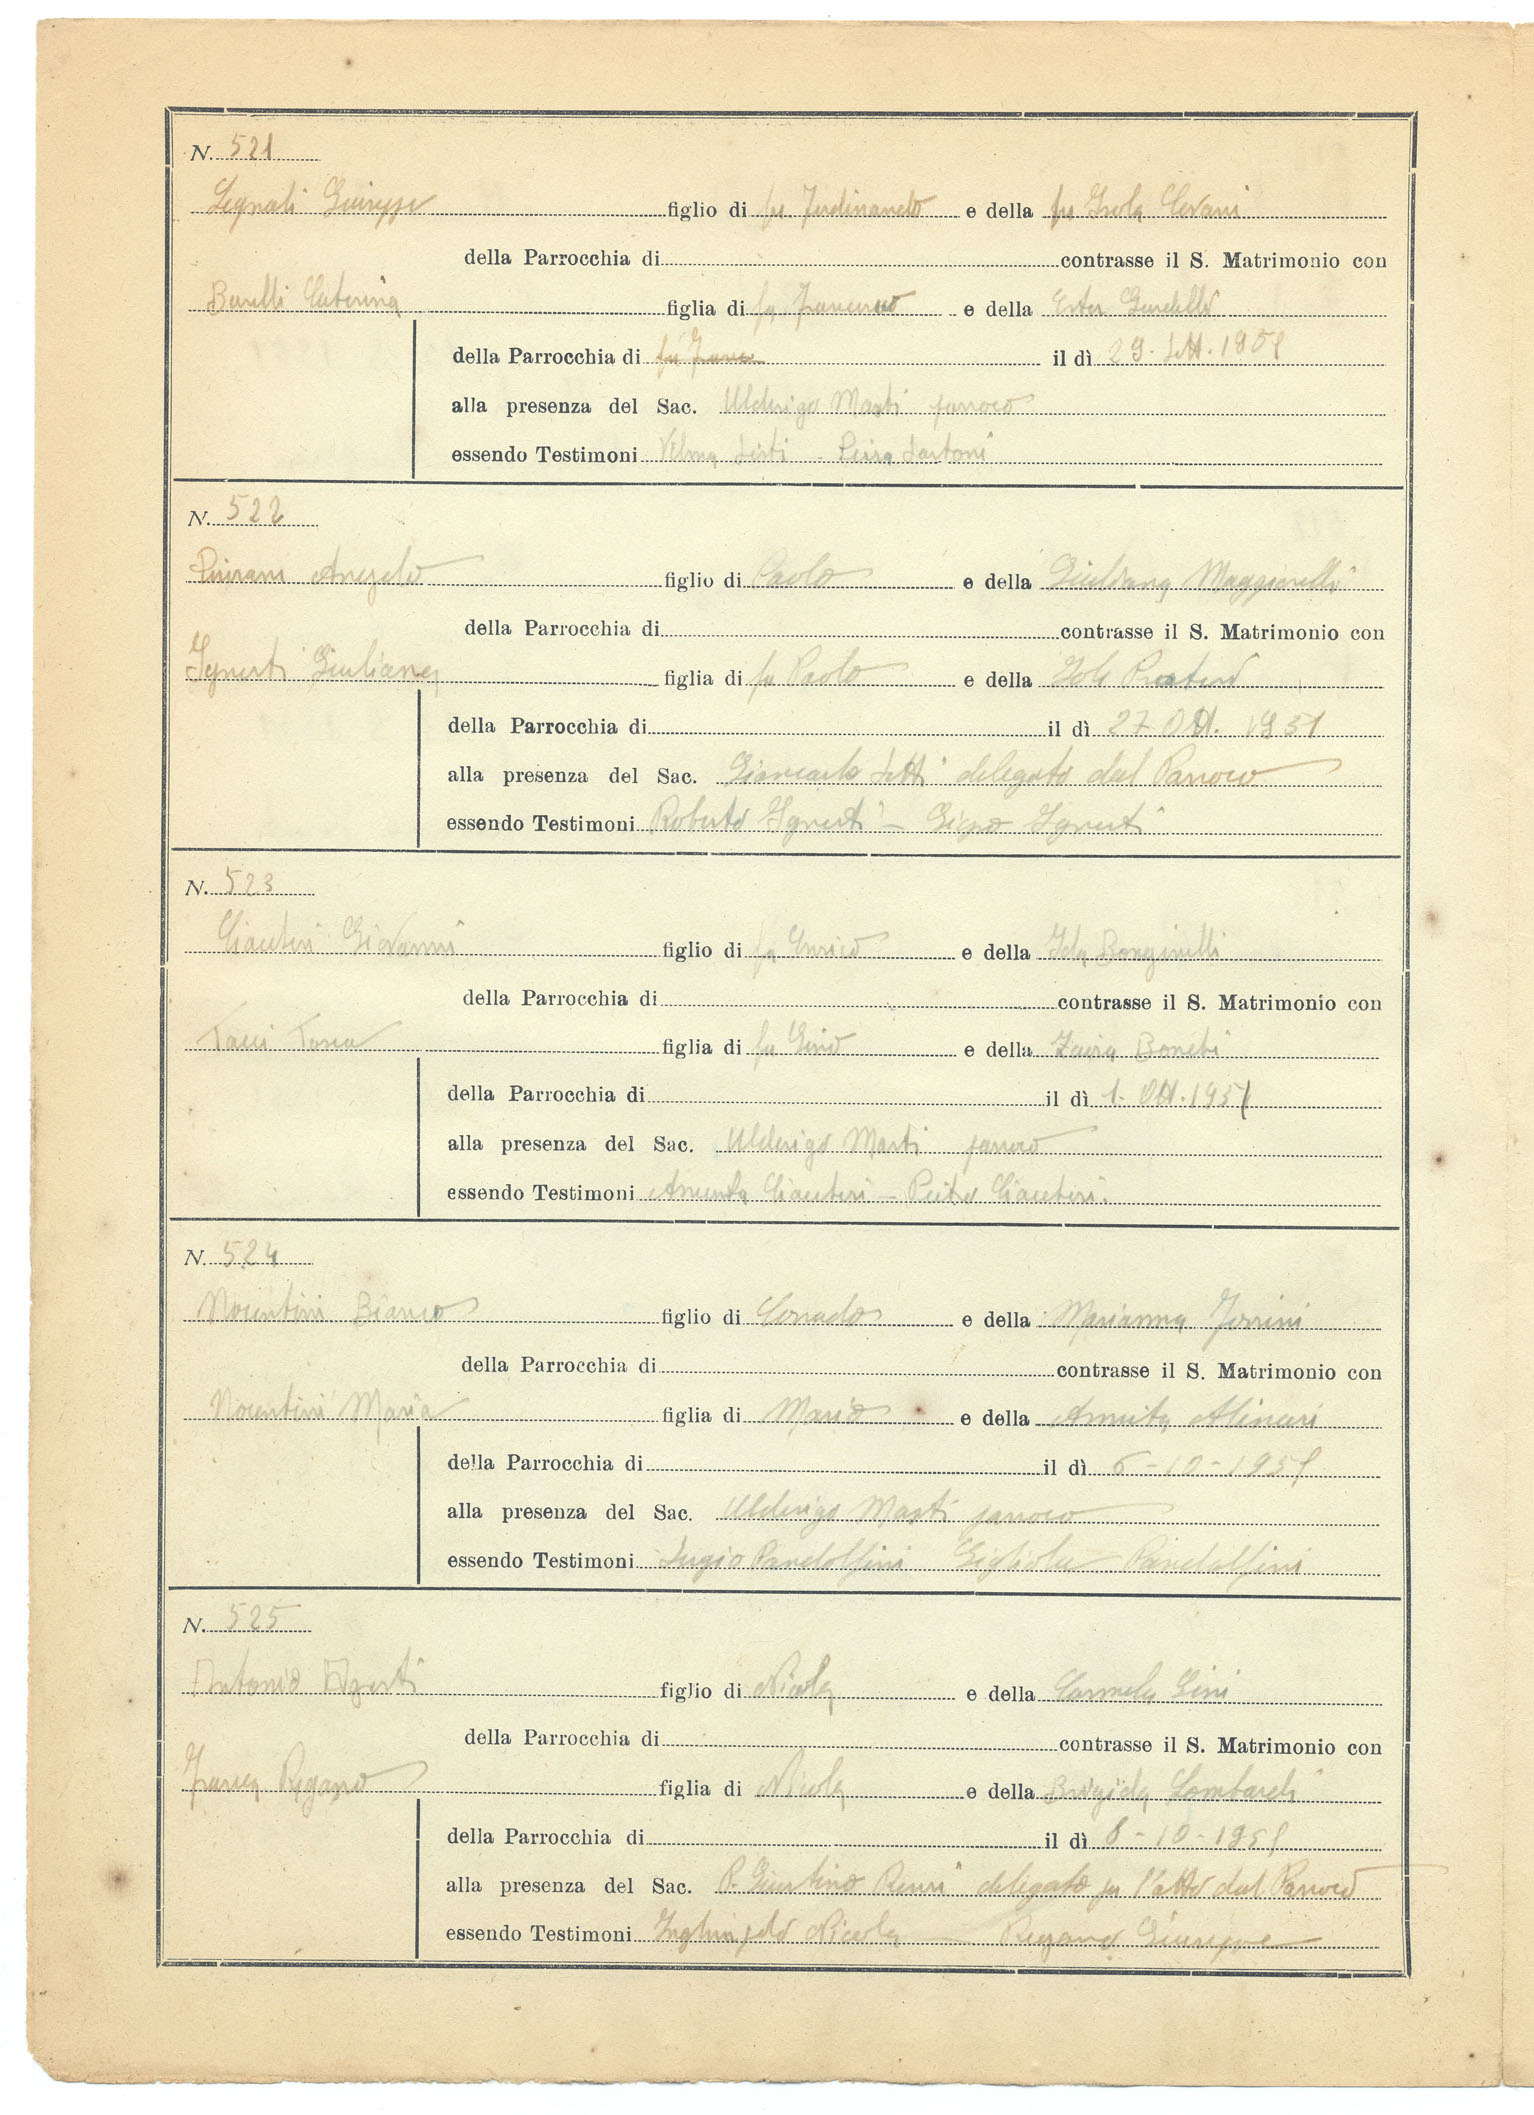 N. 521
Segnali Giuseppe figlio di fu Ferdinando e della fu Isola Cevani
della Parrocchia di contrasse il S. Matrimonio con
Borelli Caterina figlia di fu Francesco e della Ester
della Parrocchia di il dì 29. Sett. 1951
alla presenza del Sac. Ulderigo Masti parroco
essendo Testimoni Vilma Sarti - Piera Sartoni
N. 522
Angelo figlio di Paolo e della Giuldana Maggiorelli
della Parrocchia di contrasse il S. Matrimonio con
Ignesti Giuliana figlia di fu Paolo e della Iole
della Parrocchia di il dì 27 Ott. 1951
alla presenza del Sac. Giancarlo Setti delegato dal Parroco
essendo Testimoni Roberto Ignesti - Ignesti
N. 523
Ciauteri Giovanni figlio di fu Enrico e della Ida Bonginelli
della Parrocchia di contrasse il S. Matrimonio con
Tacci Tosca figlia di fu Gino e della Zaira Boneti
della Parrocchia di il dì 1. Ott. 1951
alla presenza del Sac. Ulderigo Masti parroco
essendo Testimoni Ciauteri - Pietro Ciauteri.
N. 524
Nocentini Bianco figlio di Corrado e della Marianna Forrini
della Parrocchia di contrasse il S. Matrimonio con
Nocentini Maria figlia di Mario e della Annita Alinari
della Parrocchia di il dì 6-10-1951
alla presenza del Sac. Ulderigo Masti parroco
essendo Testimoni Sergio Pandolfini Gigliola Pandolfini
N. 525
Antonio Agresti figlio di Nicola e della Carmela Gini
della Parrocchia di contrasse il S. Matrimonio con
Franca Regano figlia di Nicola e della Brigida Lombardi
della Parrocchia di il dì 8-10-1951
alla presenza del Sac. P. Giustino Renri delegato per l'atto dal Parroco
essendo Testimoni Nicola - Regano Giuseppe